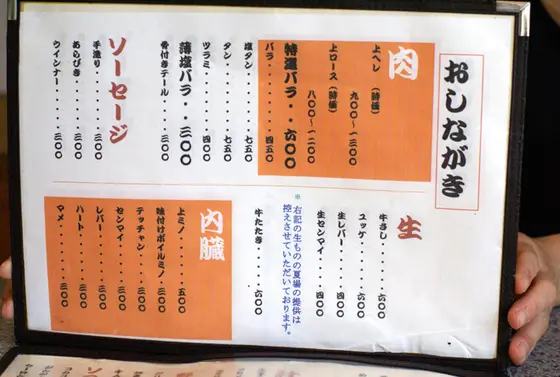 おしながき
肉
上ヘレ (時価)
九〇〇〜一三〇〇
上ロース (時価)
八〇〇〜一二〇〇
特選バラ・・六〇〇
バラ・・・・・・・四五〇
塩タン・・・・・七五〇
タン・・・・・・・七五〇
ツラミ・・・・・・四〇〇
薄塩バラ・・三〇〇
骨付きテール・・・・三〇〇
ソーセージ
手造り・・・・三〇〇
あらびき・・・・・三〇〇
ウインナー・・・・・三〇〇
生
牛さし・・・・・六〇〇
ユッケ・・・・・六〇〇
生レバー・・・・四〇〇
生センマイ・・・四〇〇
※右記の生ものの夏場の提供は
控えさせていただいております。
牛たたき・・・・・六〇〇
内臓
上ミノ・・・・・五〇〇
味付けボイルミノ・三〇〇
テッチャン・・・・三〇〇
センマイ・・・・・三〇〇
レバー・・・・・・三〇〇
ハート・・・・・・三〇〇
マメ・・・・・・・三〇〇